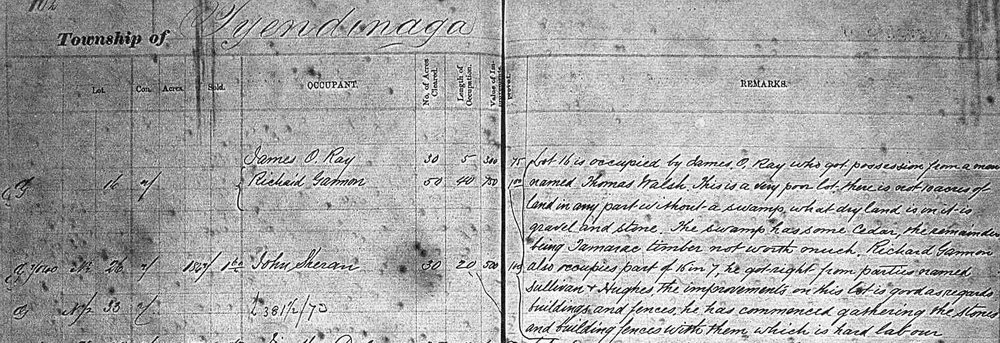 Township of Tyendinaga
Lot. Con. Acres. Sold. OCCUPANT. No. of Acres Cleared. Length of Occupation. Value of Improvements. REMARKS.
James O. Ray 30 5 300 75 Lot 16 is occupied by James O. Ray who got possession from a man
16 Richard Gannon 50 40 750 100 named Thomas Walsh. This is a very poor lot, there is not 10 acres of
land in any part without a swamp, what dry land is in it is
gravel and stone. The swamp has some Cedar, the remainder
being Tamarac timber not worth much. Richard Gannon
26 John Sheran 30 20 500 100 also occupies part of 15 in 7, he got right from parties named
Sullivan & Hughes the improvements on this lot is good as regards
N½ 33 L 381½/73 buildings and fences, he has commenced gathering the stones
and building fences with them which is hard labour